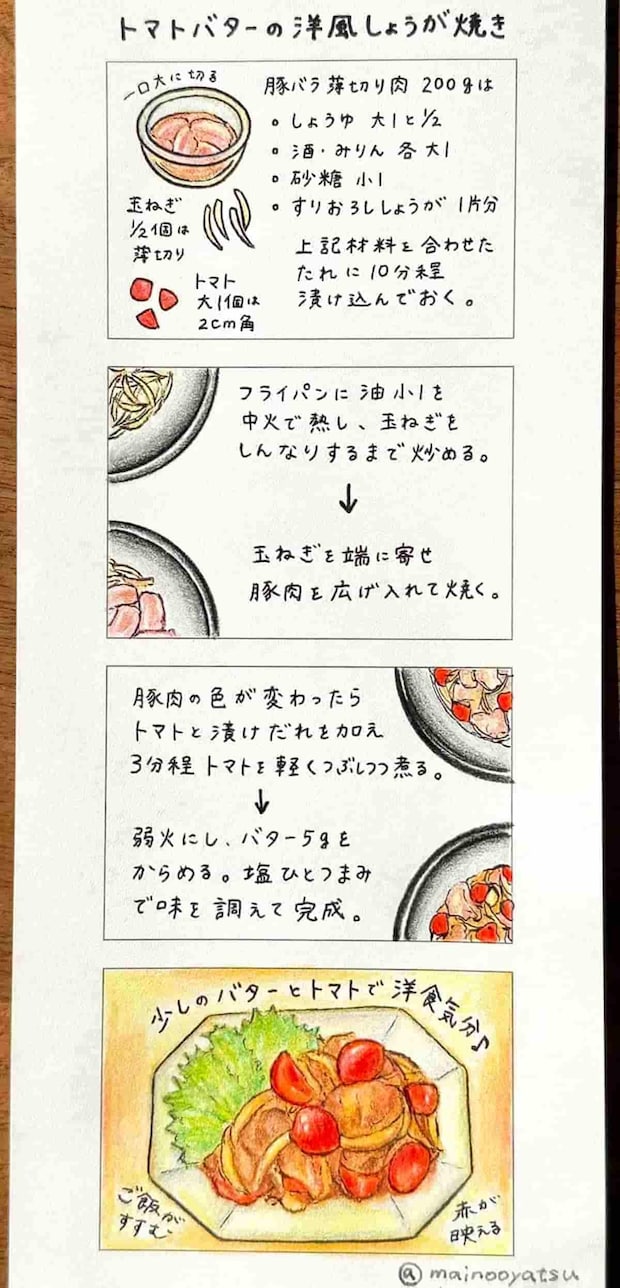 トマトバターの洋風しょうが焼き
一口大に切る
豚バラ薄切り肉 200gは
しょうゆ 大1と1/2
酒・みりん 各大1
砂糖 小1
すりおろししょうが 1片分
上記材料を合わせた
たれに10分程
漬け込んでおく。
玉ねぎ
1/2個は
薄切り
トマト
大1個は
2cm角
フライパンに油小1を
中火で熱し、玉ねぎを
しんなりするまで炒める。
↓
玉ねぎを端に寄せ
豚肉を広げ入れて焼く。
豚肉の色が変わったら
トマトと漬けだれを加え
3分程トマトを軽くつぶしつつ煮る。
↓
弱火にし、バター5gを
からめる。塩ひとつまみ
で味を調えて完成。
少しのバターとトマトで洋食気分♪
ご飯が
すすむ
赤が
映える
@mainooyatsu